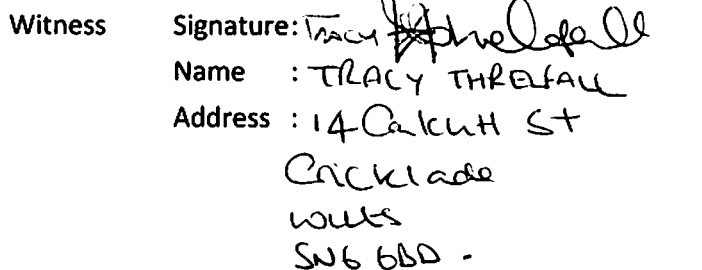 Witness Signature: Tracy Threlfall
Name : TRACY THRELFALL
Address : 14 Calcutt St
Cricklade
Wilts
SN6 6BD.